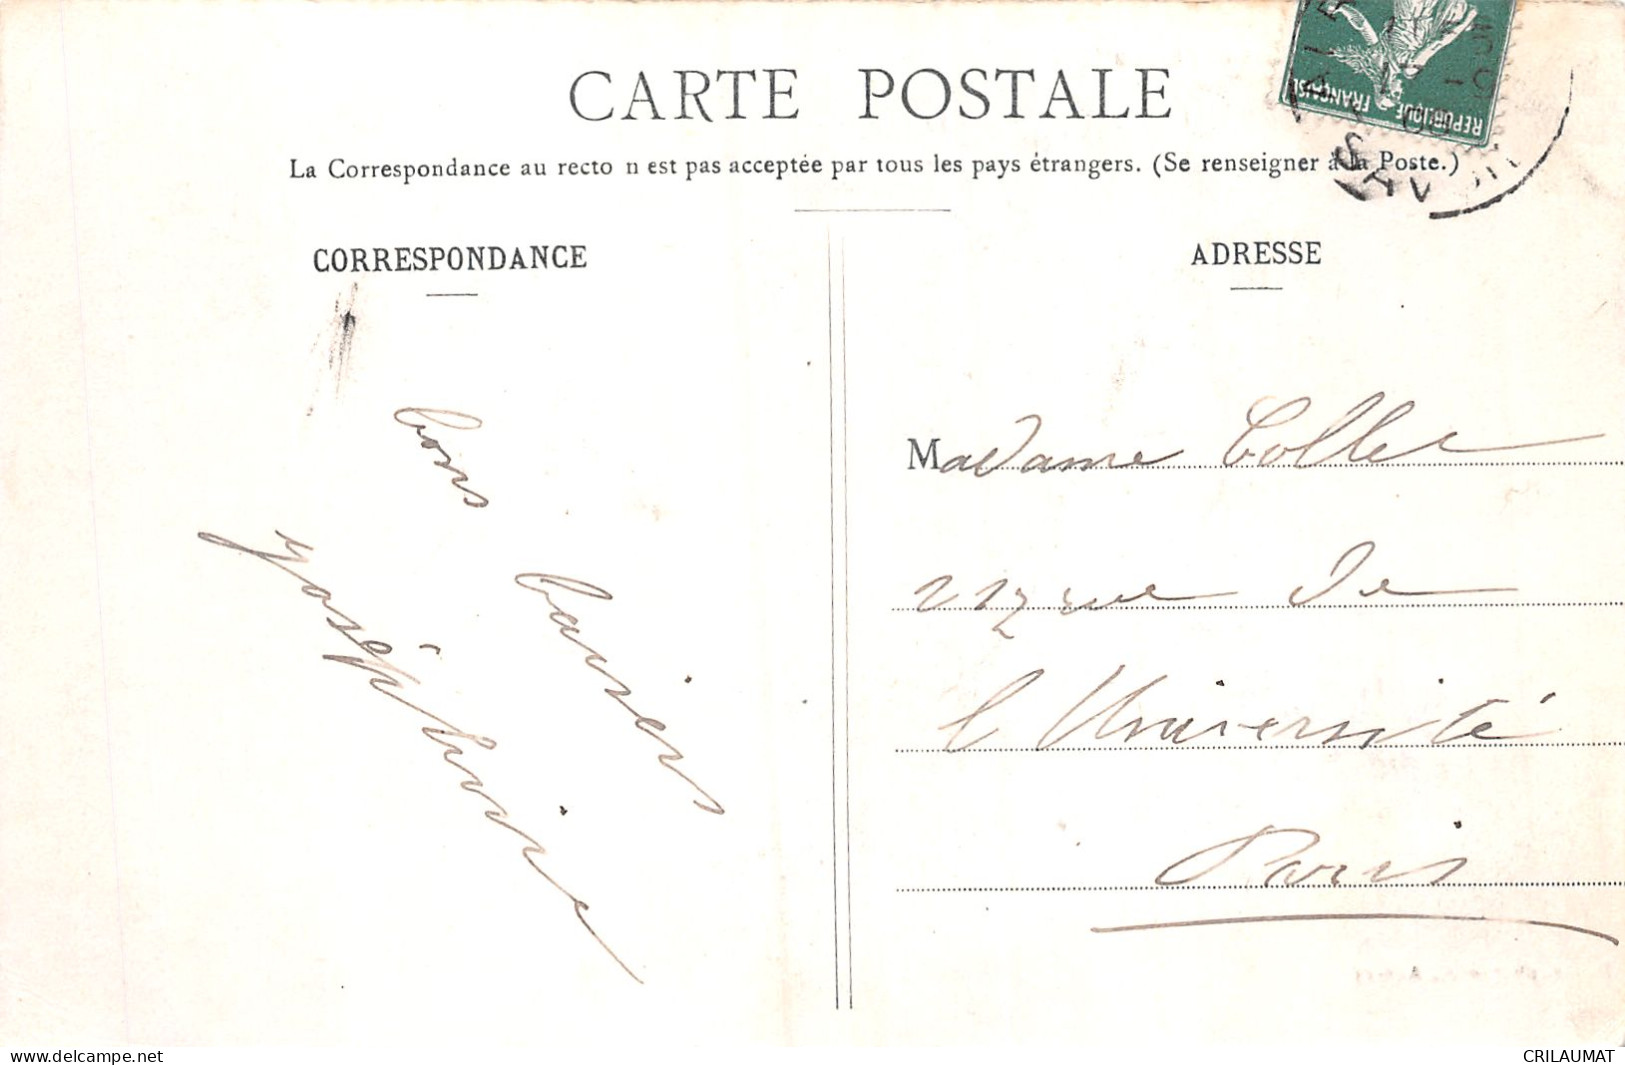 CARTE POSTALE
La Correspondance au recto n est pas acceptée par tous les pays étrangers. (Se renseigner à la Poste.)
CORRESPONDANCE
ADRESSE
bons
baisers
Joséphine
Madame Collet
rue de
l'Université
Paris
REPUBLIQUE FRANÇAISE
SAVOIE
delcampe.net
CRILAUMAT